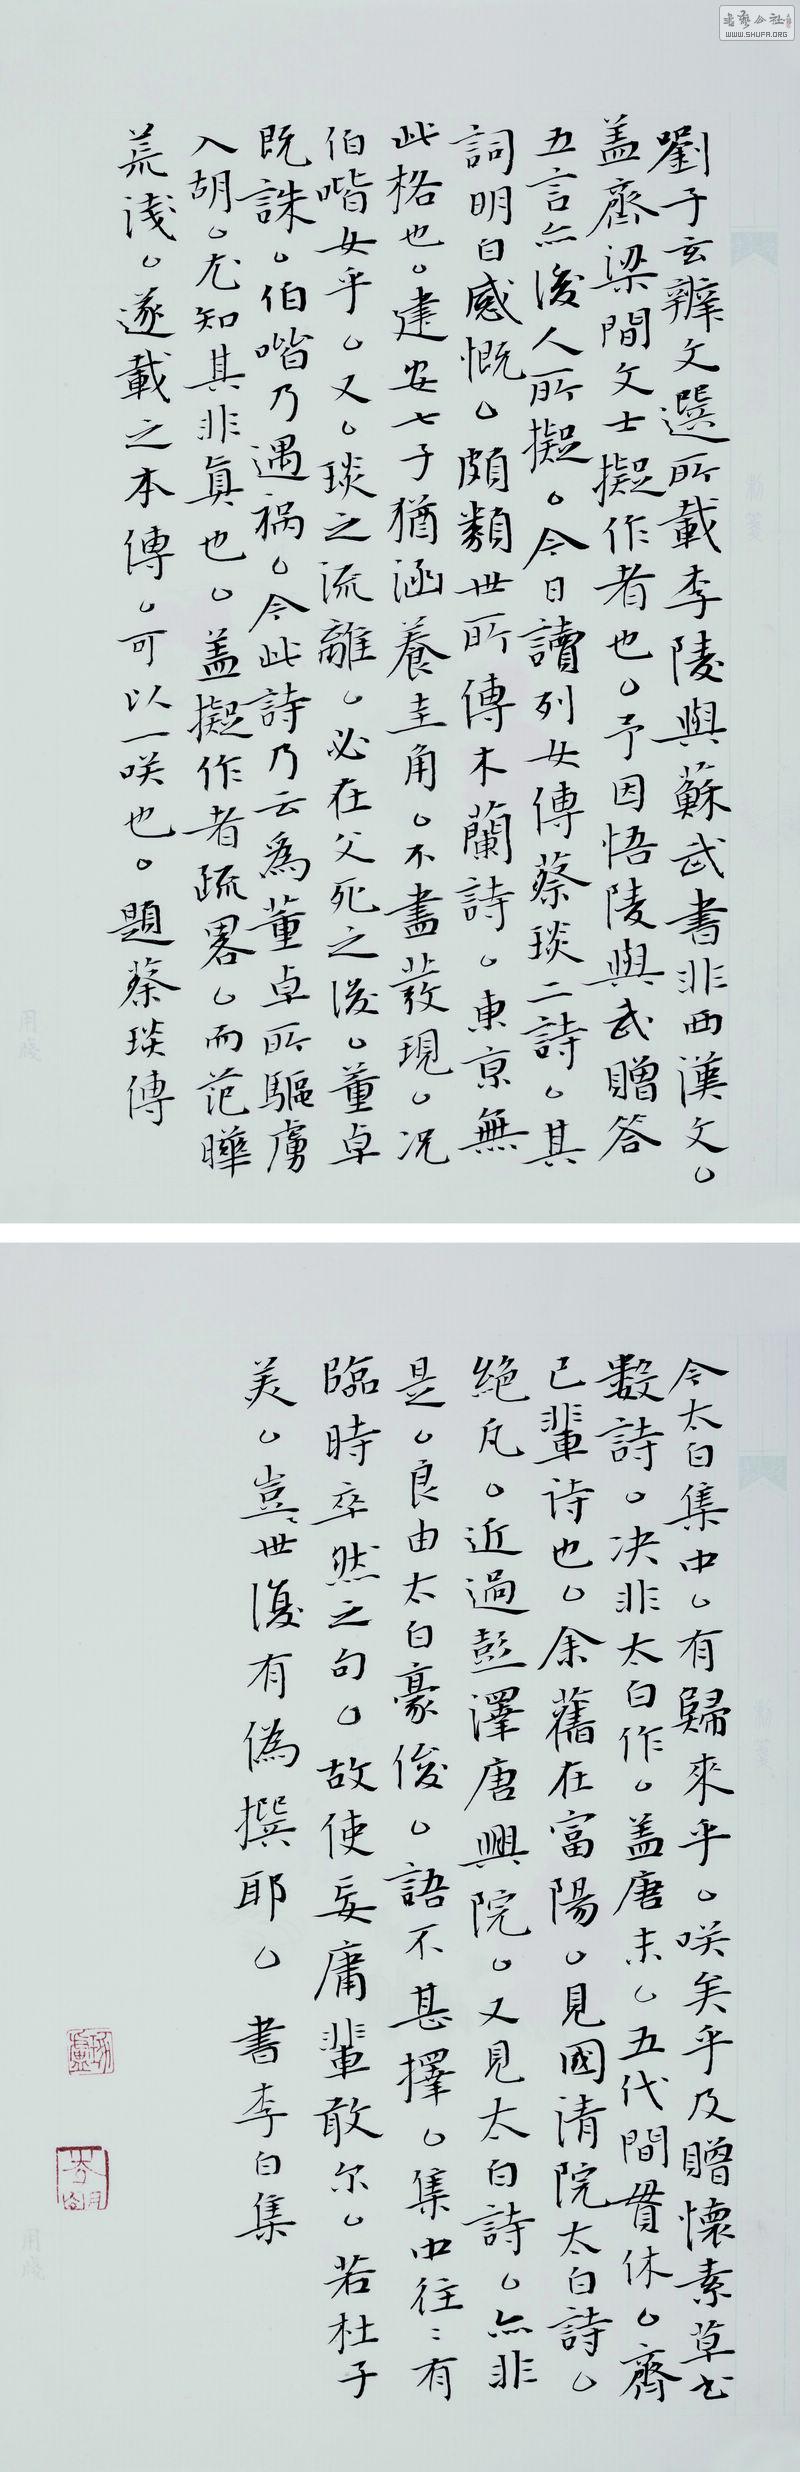 書藝公社
WWW.SHUFA.ORG
劉子玄辨文選所載李陵與蘇武書非西漢文。
盖齊梁間文士擬作者也。予因悟陵與武贈答
五言亦後人所擬。今日讀列女傳蔡琰二詩。其
詞明白感慨。頗類世所傳木蘭詩。東京無
此格也。建安七子猶涵養圭角。不盡發現。况
伯喈女乎。又。琰之流離。必在父死之後。董卓
既誅。伯喈乃遇祸。今此詩乃云為董卓所驅虜
入胡。尤知其非真也。盖擬作者疏畧。而范曄
荒淺。遂載之本傳。可以一咲也。題蔡琰傳
今太白集中。有歸來乎。咲矣乎及贈懷素草书
數詩。决非太白作。盖唐末。五代間貫休。齊
已輩诗也。余舊在富陽。見國清院太白詩。
絶凡。近過彭澤唐興院。又見太白詩。亦非
是。良由太白豪俊。語不甚擇。集中往〻有
臨時卒然之句。故使妄庸輩敢尔。若杜子
美。豈〻世復有偽撰耶。書李白集